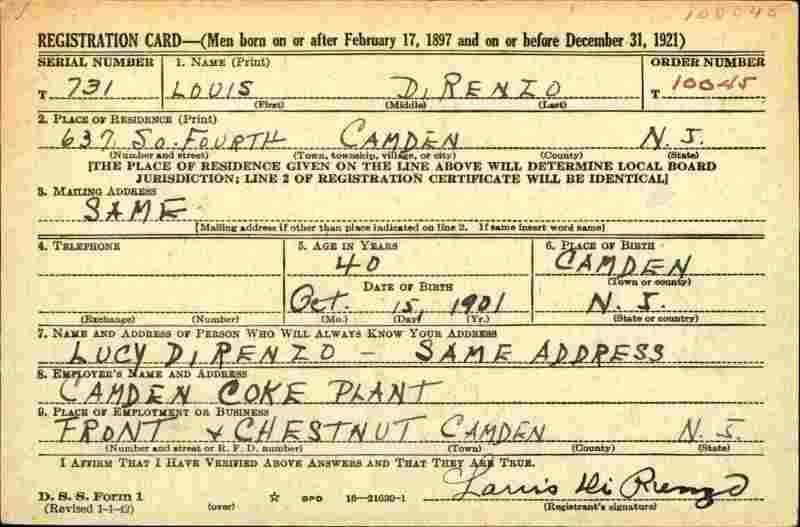 100045
REGISTRATION CARD—(Men born on or after February 17, 1897 and on or before December 31, 1921)
SERIAL NUMBER 1. NAME (Print) ORDER NUMBER
T 731 LOUIS DI RENZO T 10045
(First) (Middle) (Last)
2. PLACE OF RESIDENCE (Print)
637 So. FOURTH CAMDEN N. J.
(Number and street) (Town, township, village, or city) (County) (State)
[THE PLACE OF RESIDENCE GIVEN ON THE LINE ABOVE WILL DETERMINE LOCAL BOARD
JURISDICTION; LINE 2 OF REGISTRATION CERTIFICATE WILL BE IDENTICAL]
3. MAILING ADDRESS
SAME
[Mailing address if other than place indicated on line 2. If same insert word same]
4. TELEPHONE 5. AGE IN YEARS 6. PLACE OF BIRTH
40 CAMDEN
DATE OF BIRTH (Town or county)
Oct. 15, 1901 N. J.
(Exchange) (Number) (Mo.) (Day) (Yr.) (State or country)
7. NAME AND ADDRESS OF PERSON WHO WILL ALWAYS KNOW YOUR ADDRESS
LUCY DI RENZO - SAME ADDRESS
8. EMPLOYER'S NAME AND ADDRESS
CAMDEN COKE PLANT
9. PLACE OF EMPLOYMENT OR BUSINESS
FRONT & CHESTNUT CAMDEN N. J.
(Number and street or R. F. D. number) (Town) (County) (State)
I AFFIRM THAT I HAVE VERIFIED ABOVE ANSWERS AND THAT THEY ARE TRUE.
Louis Di Renzo
D. S. S. Form 1 GPO 16—21630-1
(Revised 1-1-42) (over) (Registrant's signature)